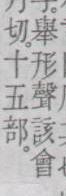 切。舉形聲該會
十五部。